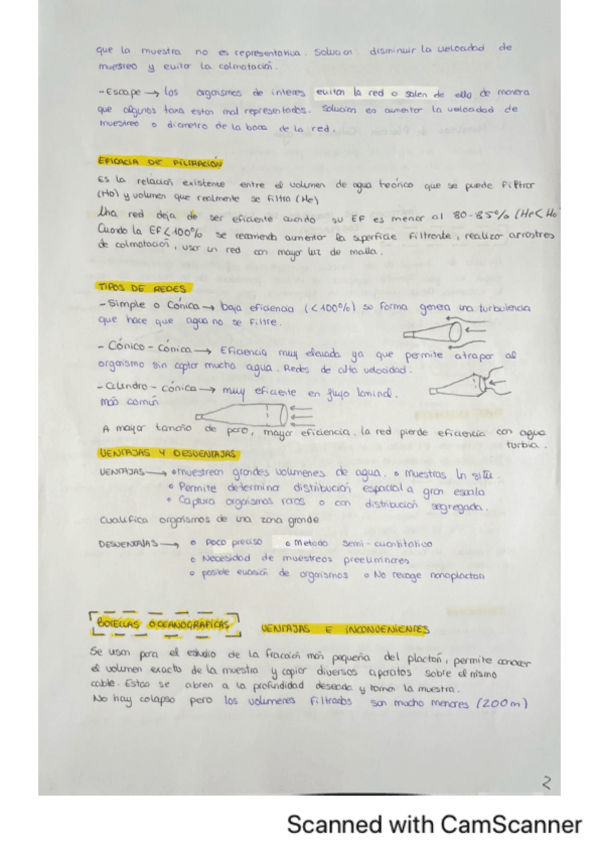 que la muestra no es representativa. Solucion disminuir la velocidad de
muestreo y evitar la colmatación.
-Escape → los organismos de interes evitan la red o salen de ella de manera
que algunos taxa esten mal representados. Solución es aumentar la velocidad de
muestreo o diametro de la boca de la red.
EFICACIA DE FILTRACIÓN
Es la relación existente entre el volumen de agua teorico que se puede filtrar
(Ho) y volumen que realmente se filtra (He)
Una red deja de ser eficiente cuando su EF es menor al 80-85% (He<Ho
Cuando la EF<100% se recomienda aumentar la superficie filtrante, realizar arrastres
de colmatación, usar un red con mayor luz de malla.
TIPOS DE REDES
- Simple o Cónica → baja eficiencia (<100%) su forma genera una turbulencia
que hace que agua no se filtre.
- Cónico - cónica → Eficiencia muy elevada ya que permite atrapar al
organismo sin captar mucha agua. Redes de alta velocidad.
- Cilindro - cónica → muy eficiente en flujo laminal.
más común
A mayor tamaño de poro, mayor eficiencia. la red pierde eficiencia con agua
turbia.
VENTAJAS Y DESVENTAJAS
VENTAJAS → • muestrean grandes volumenes de agua. • Muestras In situ
• Permite determinar distribución espacial a gran escala
• Captura organismos raros o con distribución segregada.
Cualifica organismos de una zona grande
DESVENTAJAS → • poco preciso • Metodo semi-cuantitativo
• Necesidad de muestreos preeliminares
• posible evasión de organismos • No recoge nanoplacton
BOTELLAS OCEANOGRAFICAS VENTAJAS E INCONVENIENTES
Se usan para el estudio de la fracción más pequeña del placton, permite conocer
el volumen exacto de la muestra y copiar diversos aparatos sobre el mismo
cable. Estas se abren a la profundidad deseada y toman la muestra.
No hay colapso pero los volumenes filtrados son mucho menores (200m)
2
Scanned with CamScanner